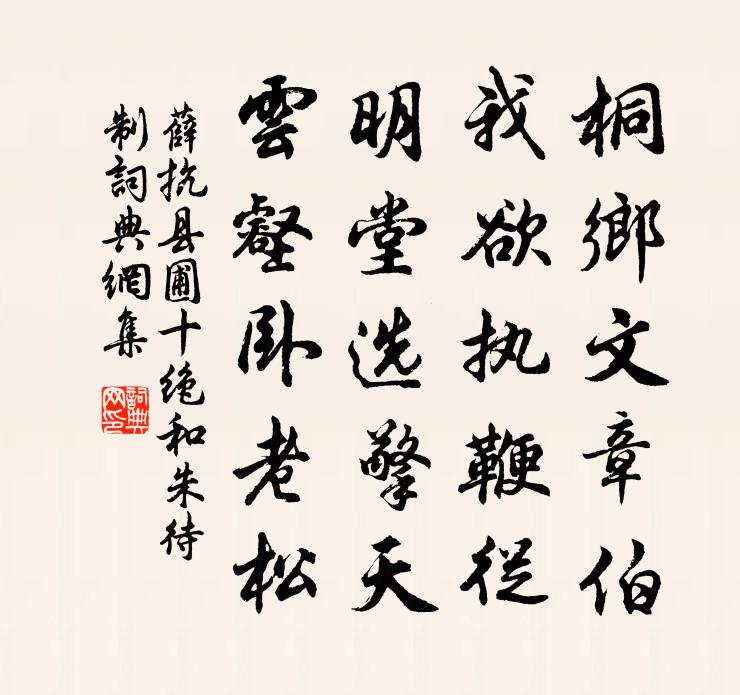 桐鄉文章伯
我欲执鞭從
明堂选擎天
雲壑卧老松
薛抗县圃十绝和朱待
制詞典網集
詞典网印